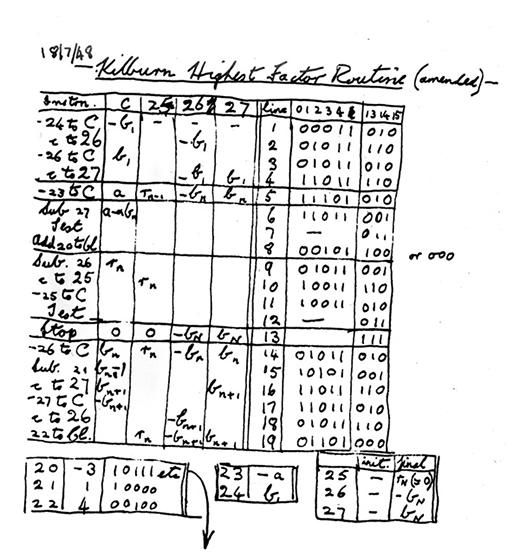 18/7/48
Kilburn Highest Factor Routine (amended)—
Instrn. C 25 26 27 line 0 1 2 3 4 13 14 15
-24 to C -b₁ — — — 1 00011 010
c to 26 -b₁ 2 01011 110
-26 to C b₁ 3 01011 010
c to 27 -b₁ b₁ 4 11011 110
-23 to C a rₙ₋₁ -bₙ bₙ 5 11101 010
Sub. 27 a-nbₙ 6 11011 001
Test 7 — 011
Add 20 to bl. 8 00101 100 or 000
Sub. 26 rₙ 9 01011 001
c to 25 rₙ 10 10011 110
-25 to C 11 10011 010
Test 12 — 011
Stop 0 0 -b_N b_N 13 111
-26 to C bₙ rₙ -bₙ bₙ 14 01011 010
Sub. 21 bₙ₊₁ 15 10101 001
c to 27 bₙ₊₁ bₙ₊₁ 16 11011 110
-27 to C -bₙ₊₁ 17 11011 010
c to 26 -bₙ₊₁ 18 01011 110
22 to bl. rₙ -bₙ₊₁ bₙ₊₁ 19 01101 000
20 -3 10111 etc
21 1 10000
22 4 00100
23 -a
24 b₁
init. final
25 — r_N (=0)
26 — -b_N
27 — b_N